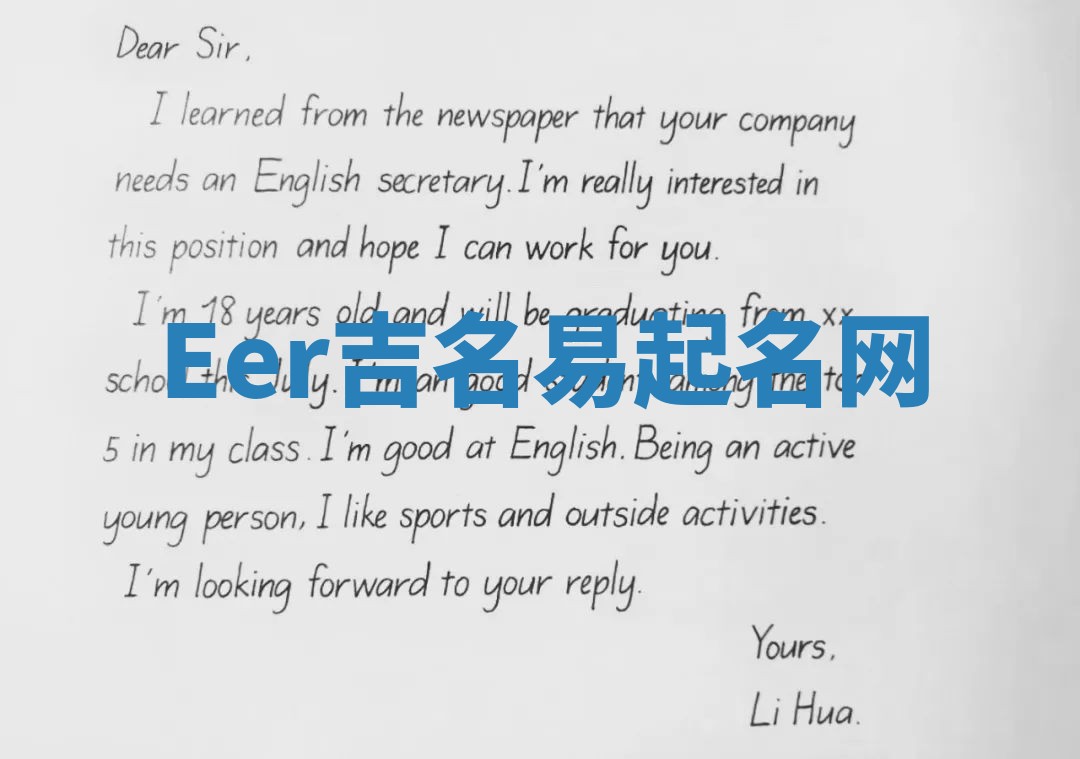 Dear Sir,
I learned from the newspaper that your company
needs an English secretary. I'm really interested in
this position and hope I can work for you.
I'm 18 years old and will be graduating from xx
school this July. I'm an good student among the top
Eer吉名易起名网
5 in my class. I'm good at English. Being an active
young person, I like sports and outside activities.
I'm looking forward to your reply.
Yours,
Li Hua.